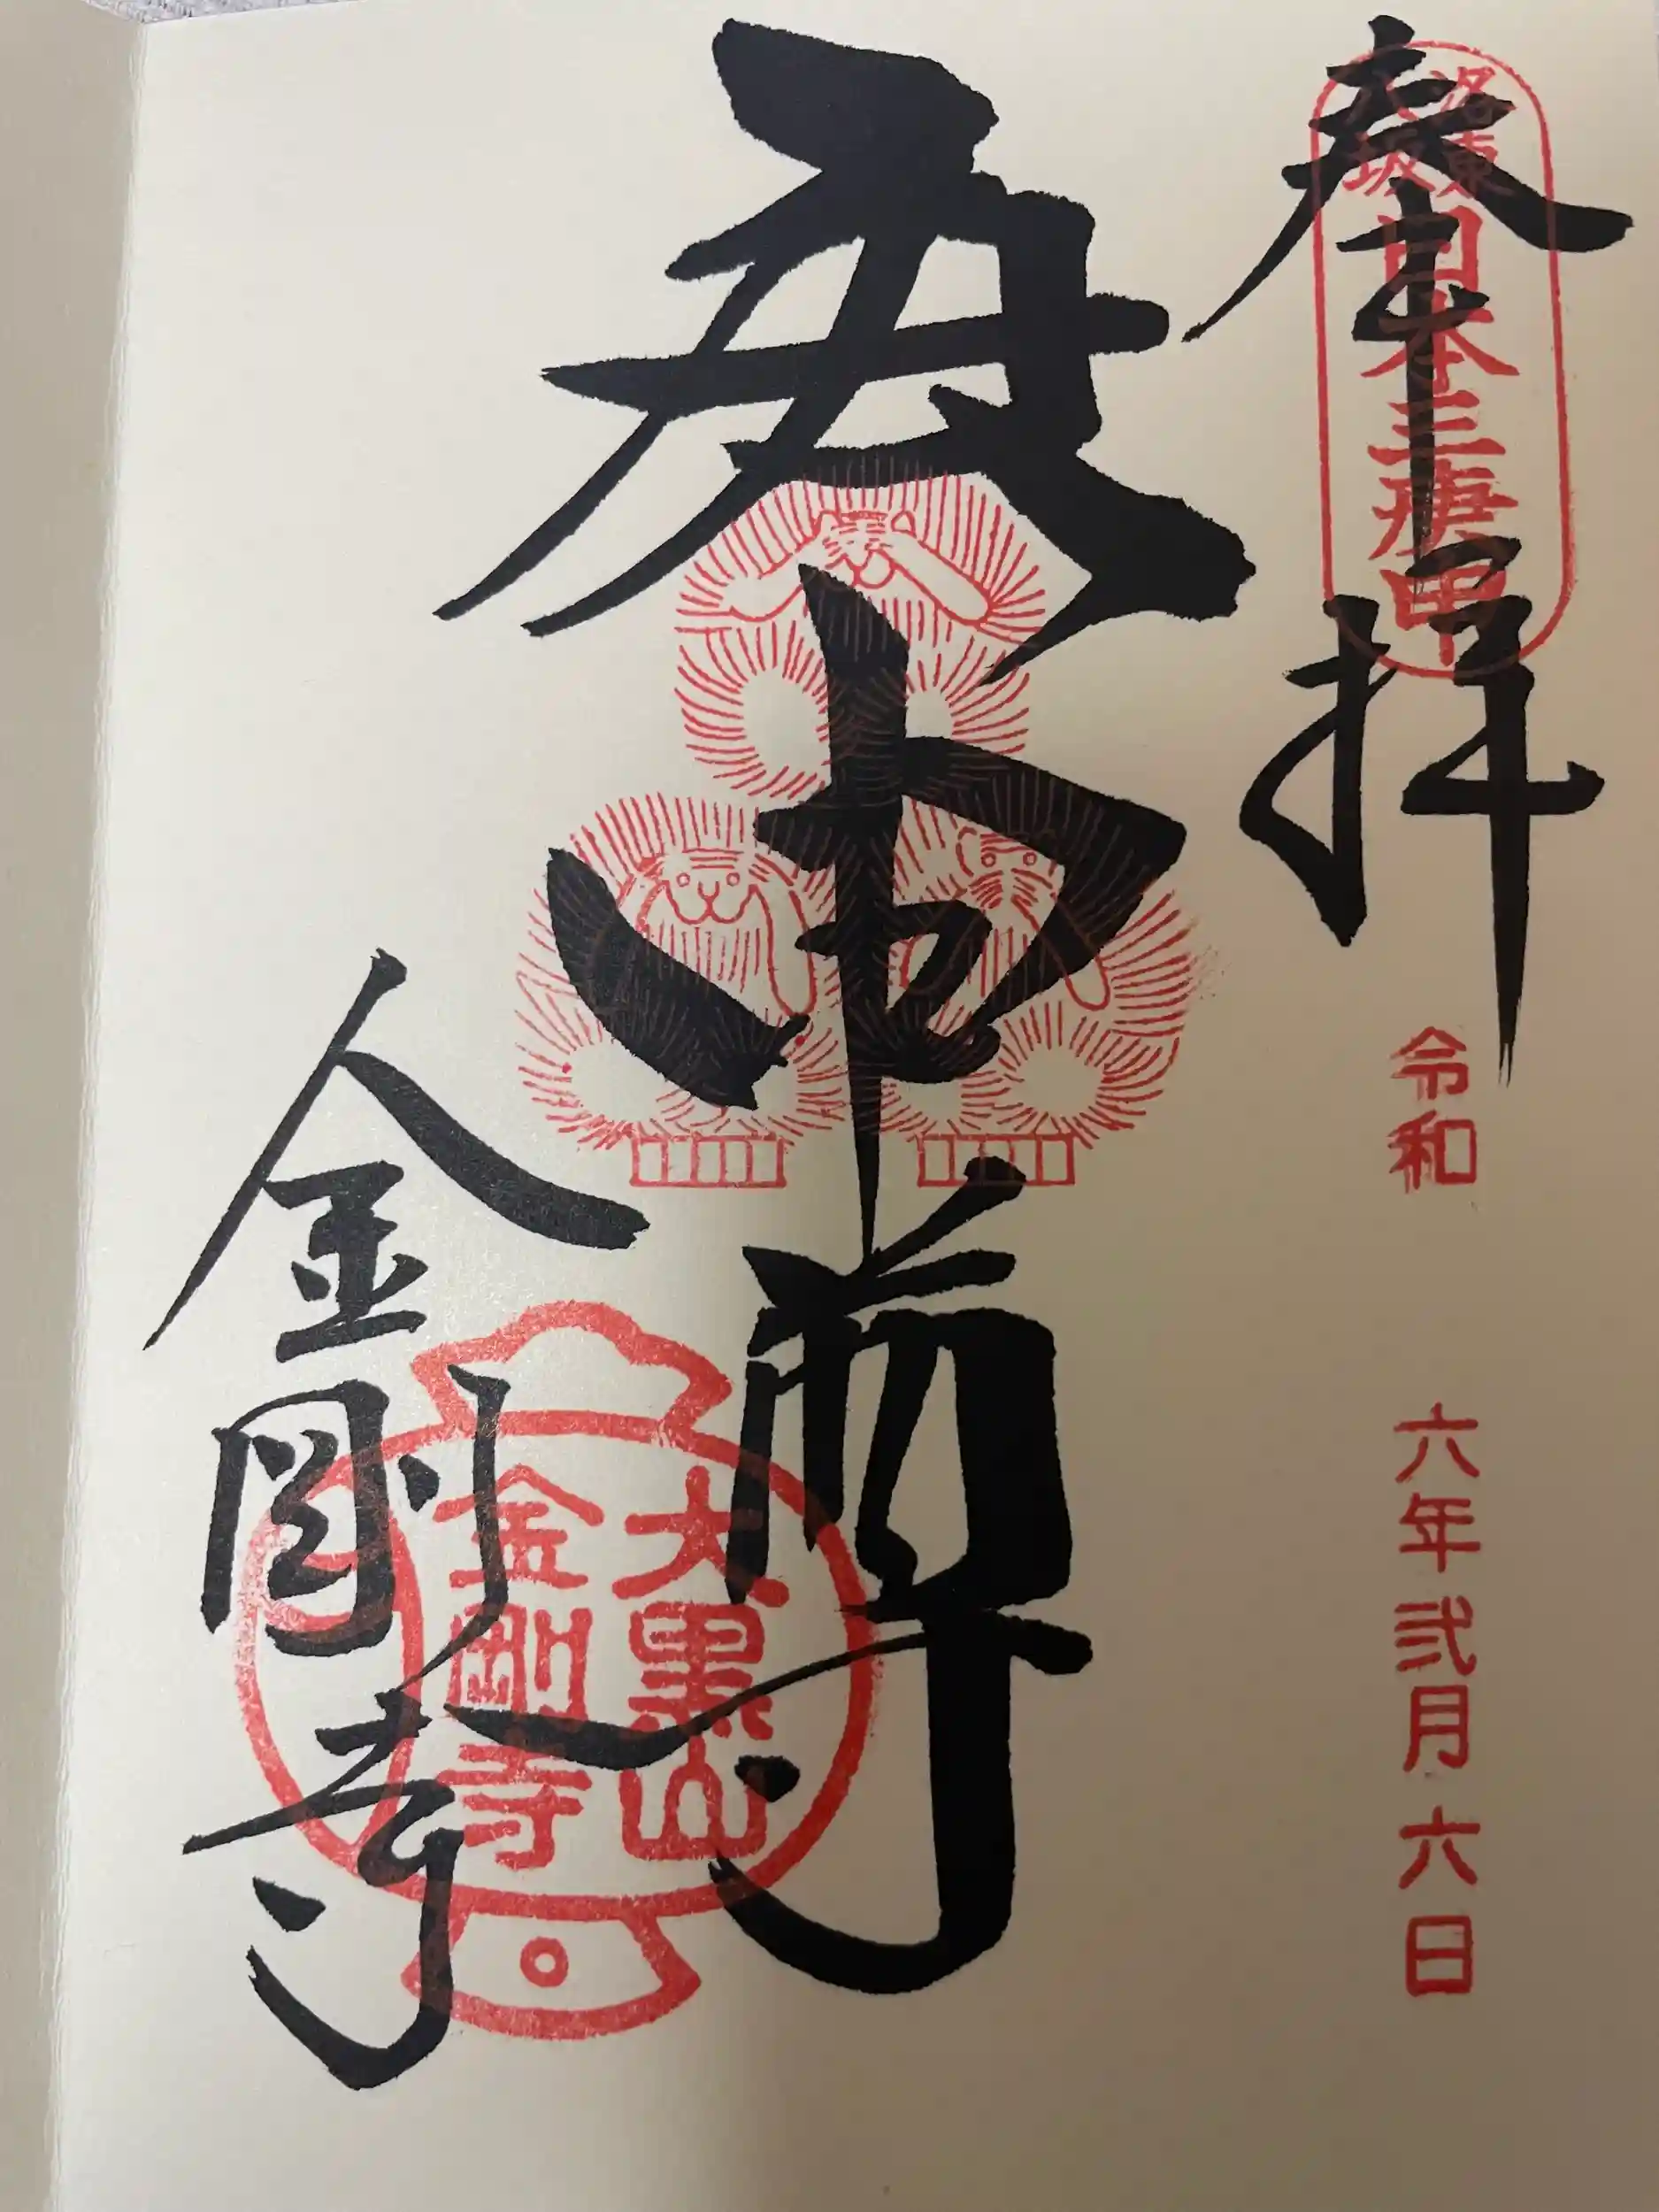 奉拝
洛東
八坂
日本三庚申
令和 六年弐月六日
庚申尊
金剛寺
大黒山
金剛寺